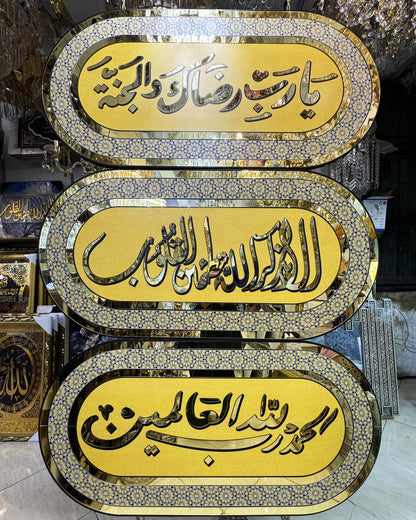 يا رب رضاك والجنة
الا بذكر الله تطمئن القلوب
الحمد لله رب العالمين
الله